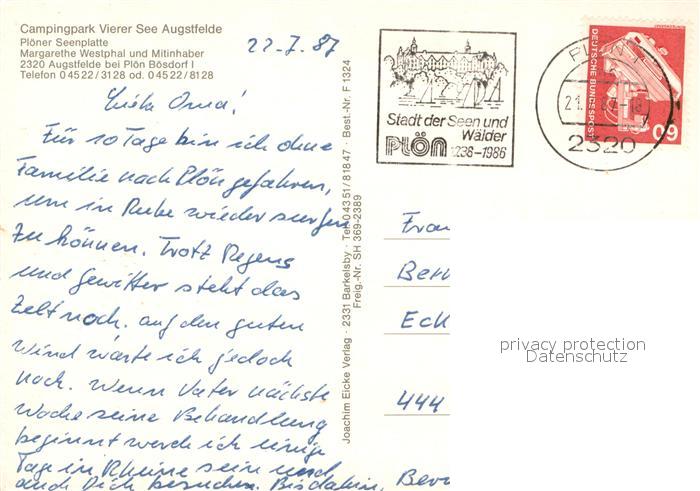 Campingpark Vierer See Augstfelde
Plöner Seenplatte
Margarethe Westphal und Mitinhaber
2320 Augstfelde bei Plön Bösdorf I
Telefon 0 45 22 / 31 28 od. 0 45 22 / 81 28
22-7.87
Liebe Oma!
Für 10 Tage bin ich ohne
Familie nach Plön gefahren,
um in Ruhe wieder surfen
zu können. Trotz Regens
und Gewitter steht das
Zelt noch. auf den guten
Wind warte ich jedoch
noch. Wenn Vater nächste
Woche seine Behandlung
beginnt werde ich einige
Tage in Rheine sein und
auch Dich besuchen. Bis dahin,
Joachim Eicke Verlag · 2331 Barkelsby · Tel. 0 43 51 / 8 18 47 · Best.-Nr. F 1324
Freig.-Nr. SH 369-2389
Stadt der Seen und
Wälder
PLÖN 1236–1986
2320
DEUTSCHE BUNDESPOST
60
Frau
Ber
Eck
444
Ber
privacy protection
Datenschutz